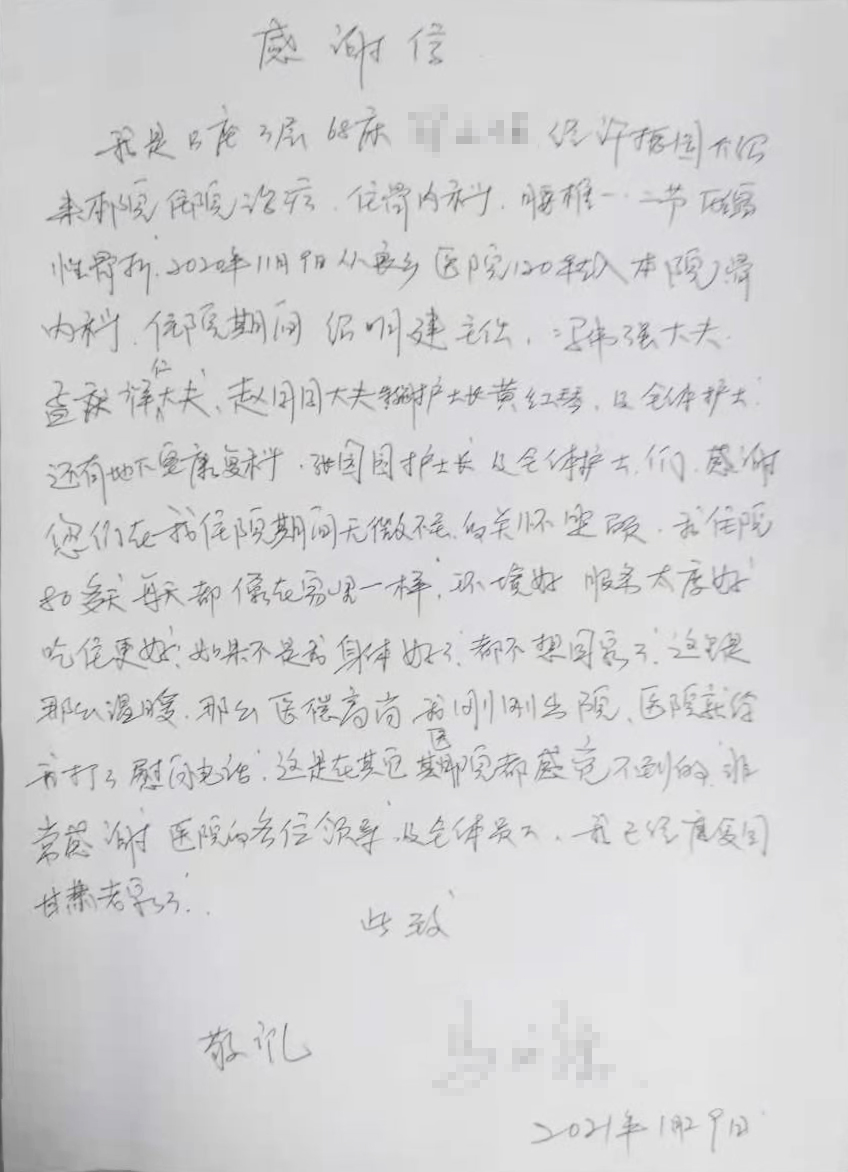 感谢信
我是B座3层68床 经许振国大伯
来本院住院治疗，住骨内科，腰椎一·二节压缩
性骨折，2020年11月9日从家乡医院120转入本院骨
内科，住院期间 明建主任，伟强大夫
大夫，赵团团大夫 护士长黄红琴，及全体护士
还有地下室康复科，张园园护士长及全体护士们，感谢
您们在我住院期间无微不至的关怀照顾，我住院
80多天每天都像在家里一样，环境好 服务太度好
吃住更好，如果不是我身体好了，都不想回家了，这里是
那么温暖，那么医德高尚 我刚刚出院，医院就给
我打了慰问电话，这是在其它医院都感觉不到的，非
常感谢医院的各位领导，及全体员工，我已经康复回
甘肃老家了。
此致
敬礼
2021年1月29日